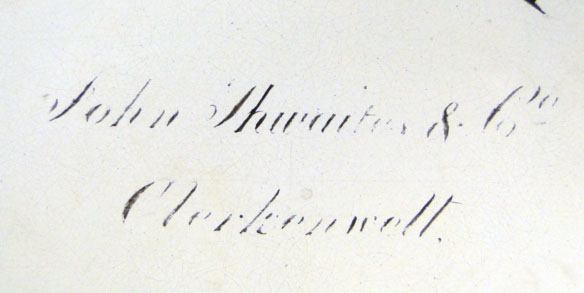 John Thwaites & Co
Clerkenwell.